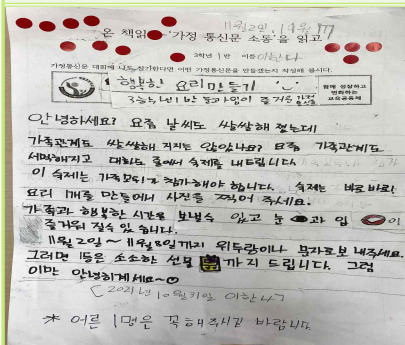 11월2일, 1수업 끝
온 책읽기 '가정 통신문 소동'을 읽고
3학년 1반 이름 이한나
가정통신문 대회에 나도 참가한다면 어떤 가정통신문을 만들겠는지 작성해 봅시다.
행복한 요리만들기
함께 성장하고
변화하는
교육공동체
3학년 1반 놀라임이 즐거운 가정통신문
안녕하세요? 요즘 날씨도 쌀쌀해 졌는데
가족관계도 쌀쌀해 지지는 않았나요? 요즘 가족관계도
서먹해지고 대화도 줄어서 숙제를 내드립니다.
이 숙제는 가족모두가 참가해야 합니다. 숙제는 바로바로!
요리 1개를 만들어서 사진을 찍어 주세요.
가족과 행복한 시간을 보낼수 있고 눈과 입이
즐거워 질수 있습니다.
11월2일~11월8일까지 위두랑이나 문자로 보내주세요.
그러면 1등은 소소한 선물까지 드립니다. 그럼
이만 안녕히계세요~
(2021년 10월31일 이한나)
* 어른 1명은 꼭 해주시길 바랍니다.